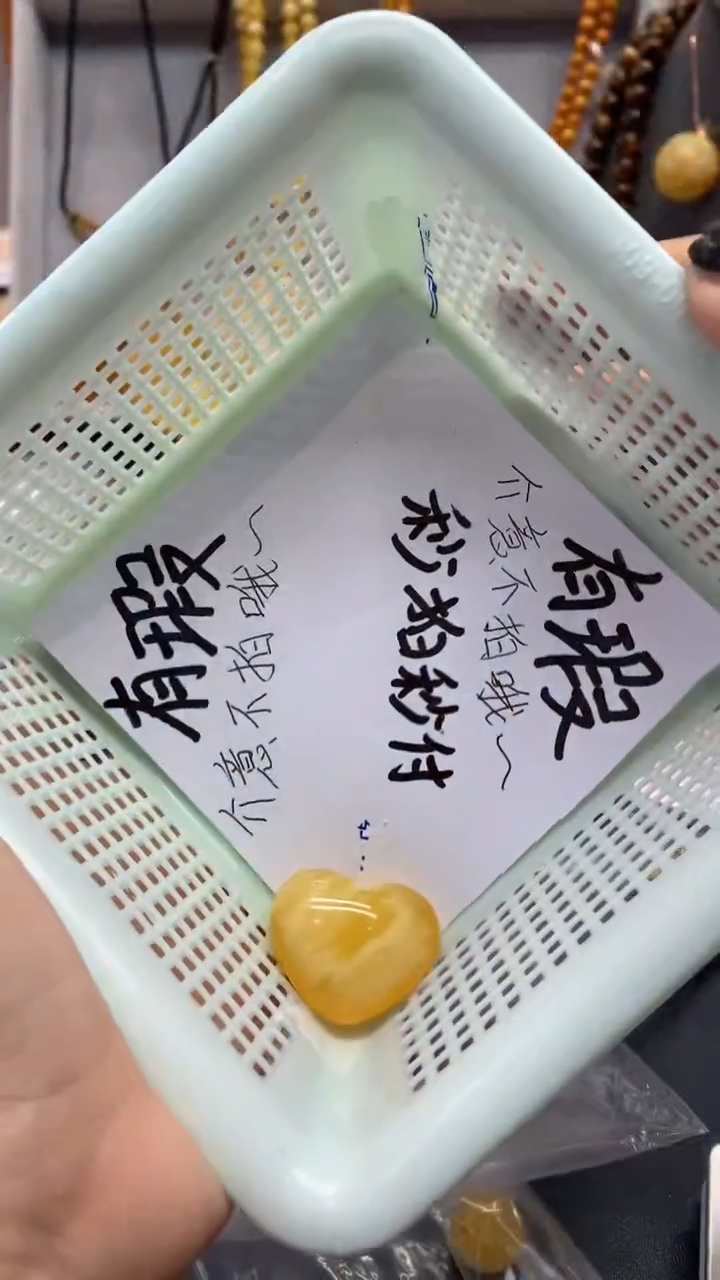 有瑕
介意不拍哦~
秒拍秒付
有瑕
介意不拍哦~